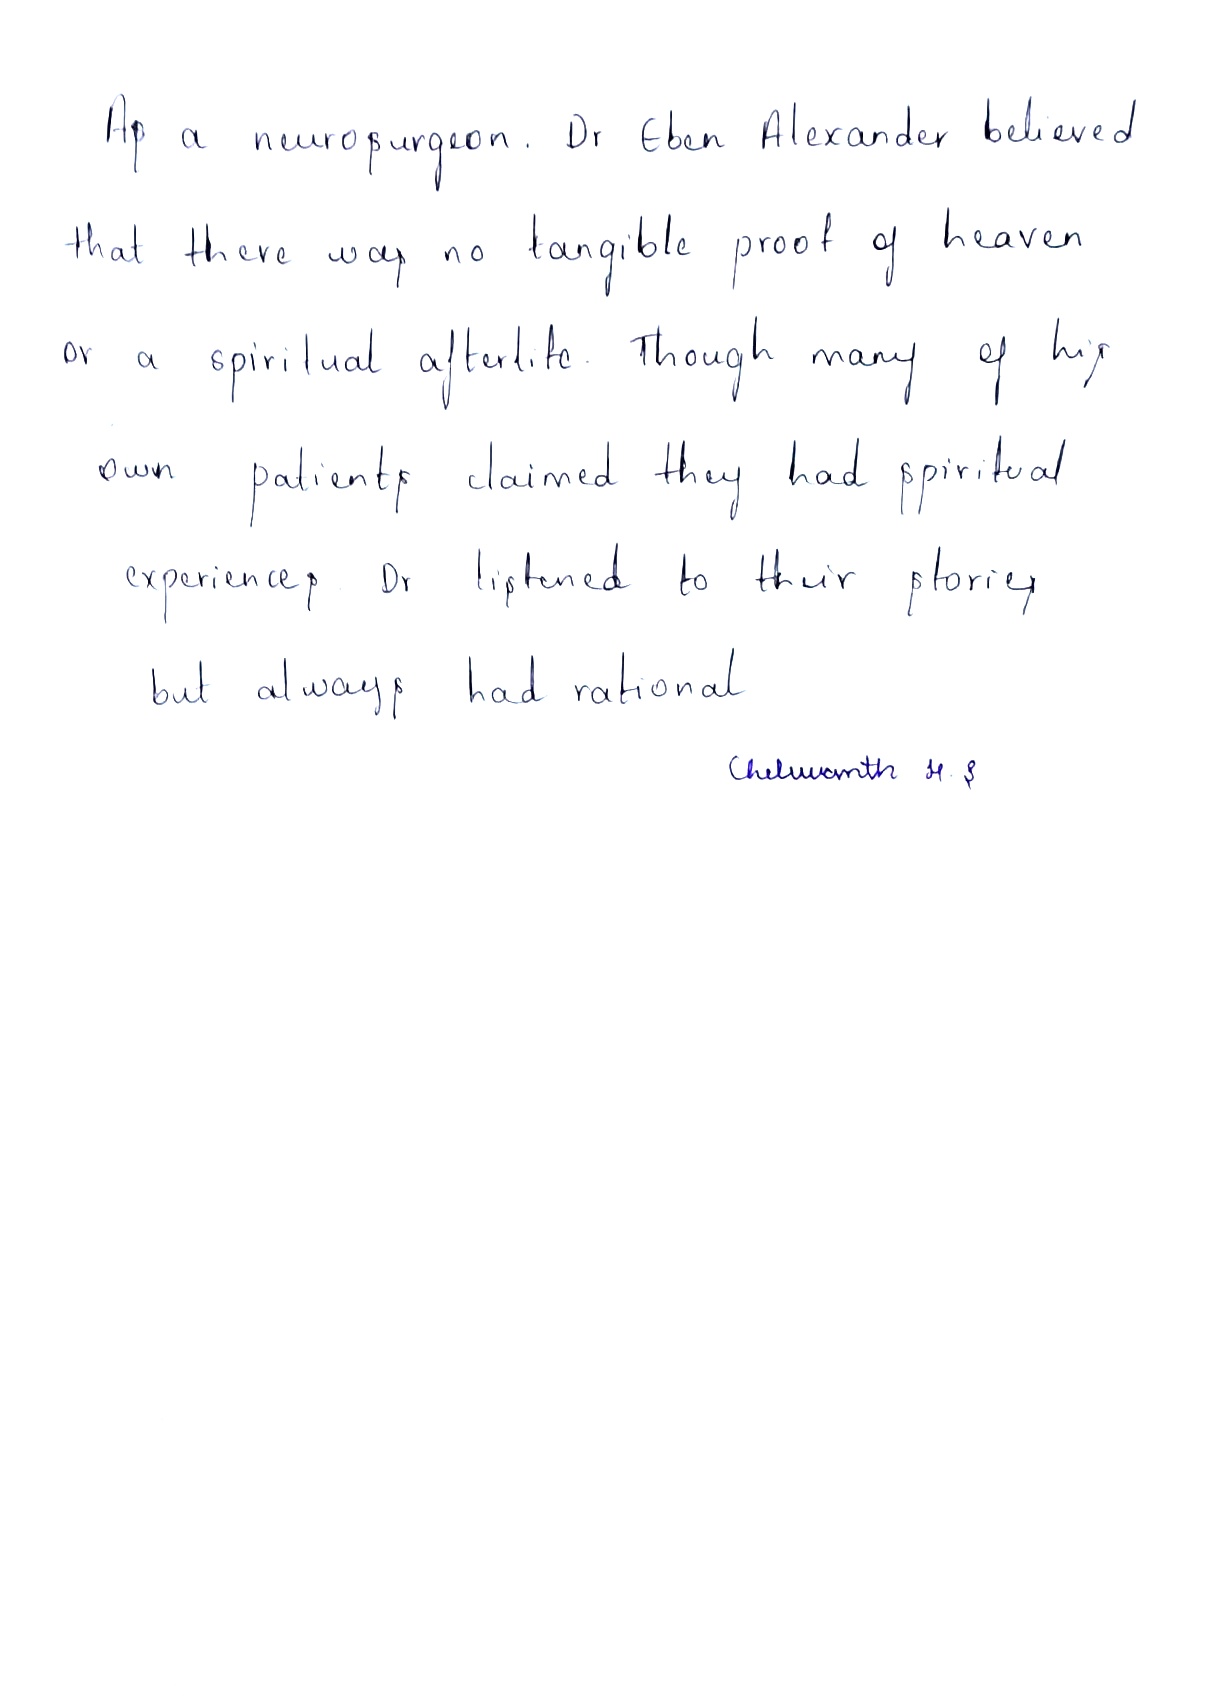 As a neurosurgeon. Dr Eben Alexander believed
that there was no tangible proof of heaven
or a spiritual afterlife. Though many of his
own patients claimed they had spiritual
experiences. Dr listened to their stories
but always had rational
Chelwanth H.S